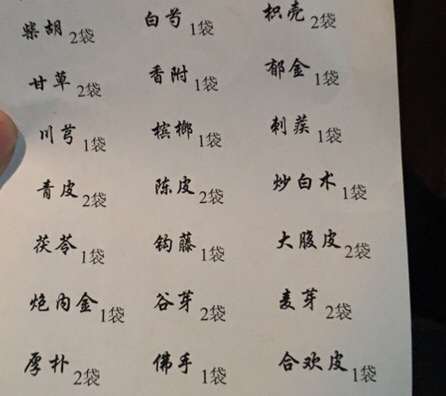 柴胡 2袋 白芍 1袋 枳壳 2袋
甘草 2袋 香附 1袋 郁金 1袋
川芎 1袋 槟榔 1袋 刺蒺 1袋
青皮 2袋 陈皮 2袋 炒白术 1袋
茯苓 1袋 钩藤 1袋 大腹皮 2袋
炮内金 1袋 谷芽 2袋 麦芽 2袋
厚朴 2袋 佛手 1袋 合欢皮 1袋